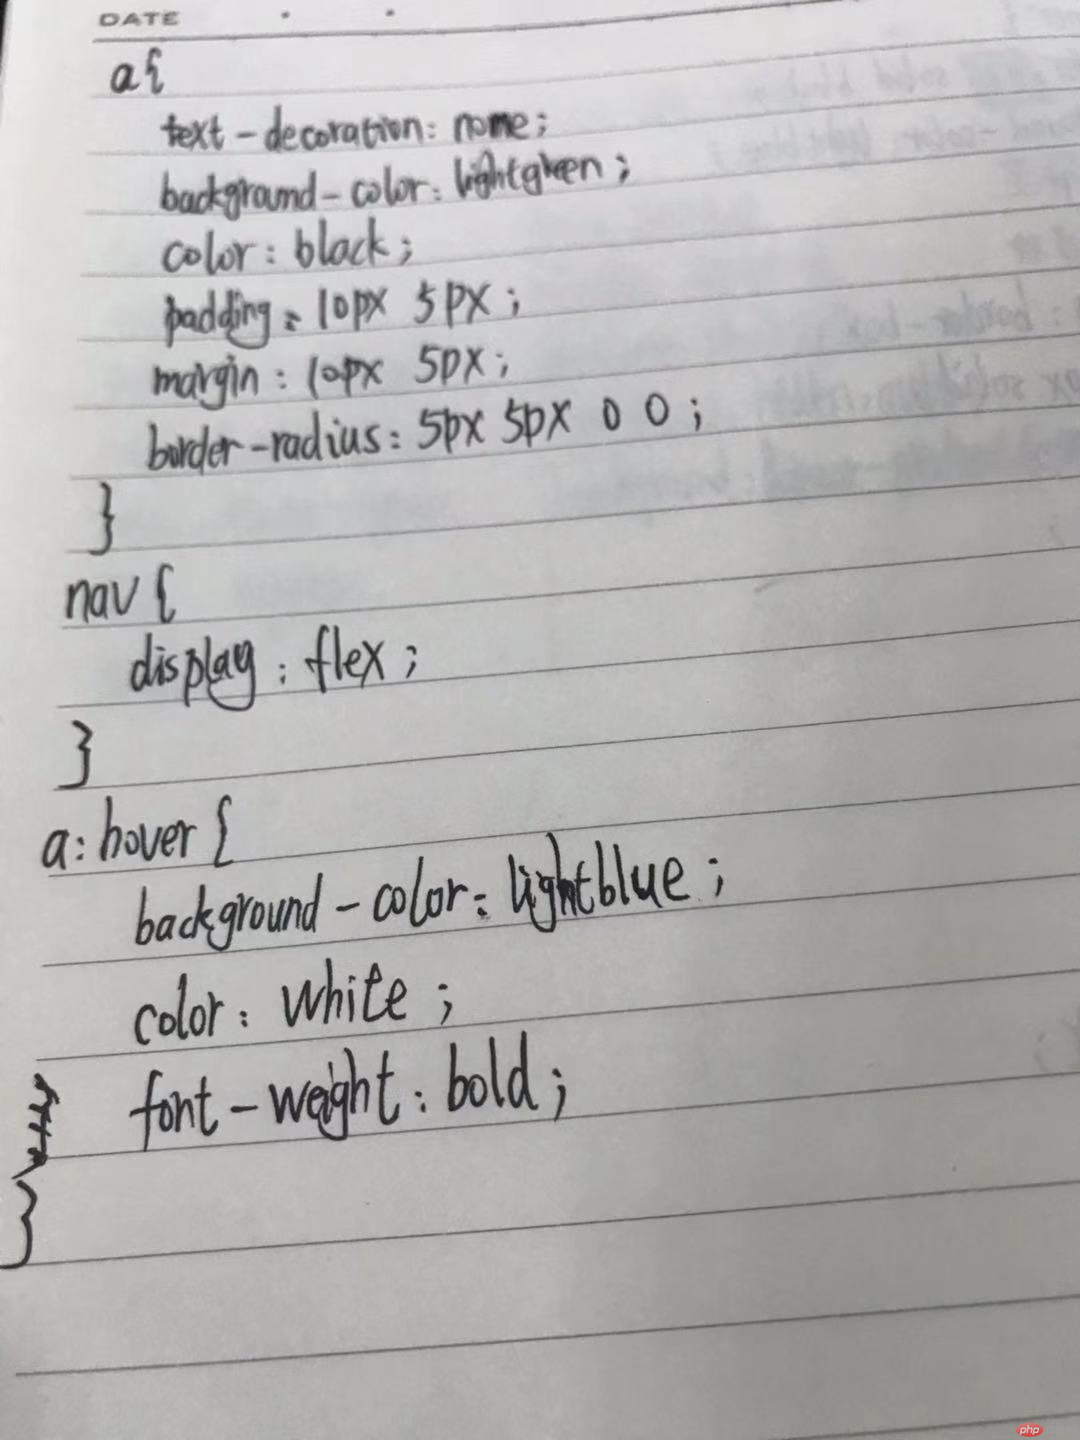 DATE
a{
text-decoration: none;
background-color: lightgreen;
color: black;
padding: 10px 5px;
margin: 10px 5px;
border-radius: 5px 5px 0 0;
}
nav{
display: flex;
}
a:hover{
background-color: lightblue;
color: white;
font-weight: bold;
}
php